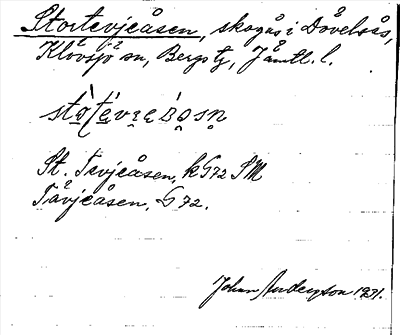 Stortevjeåsen, skogås i Dåvelsås,
Klövsjö sn, Bergs tg, Jämtl. l.
St. Tevjeåsen, k G72 SM
Tåvjeåsen, G 72.
John Andersson 1931.